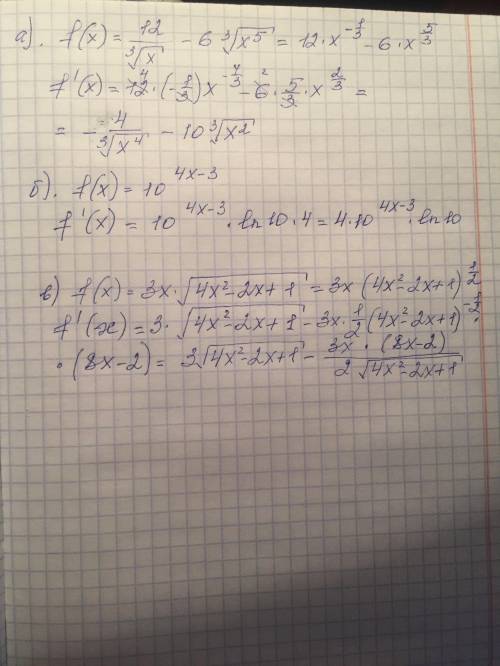 а). f(x) = 12/∛x − 6 ∛x⁵ = 12·x^(-1/3) − 6·x^(5/3)
f'(x) = 12·(−1/3)x^(-4/3) − 6·5/3·x^(2/3) =
= − 4/∛x⁴ − 10 ∛x²
б). f(x) = 10^(4x−3)
f'(x) = 10^(4x−3)·ln10·4 = 4·10^(4x−3)·ln10
в) f(x) = 3x·√(4x²−2x+1) = 3x(4x²−2x+1)^(1/2)
f'(x) = 3·√(4x²−2x+1) − 3x·1/2(4x²−2x+1)^(-1/2)·
·(8x−2) = 3√(4x²−2x+1) − 3x·(8x−2)/2√(4x²−2x+1)